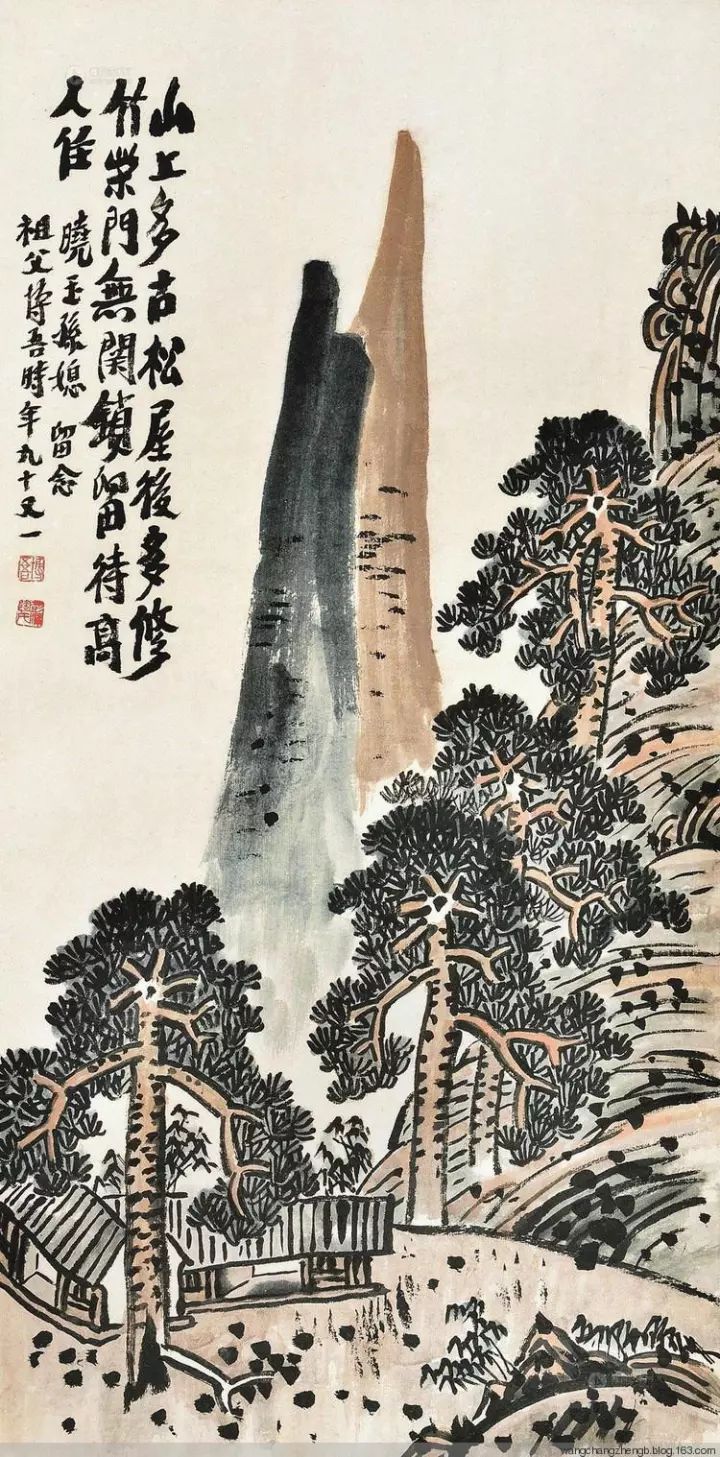 山上多古松屋後多修
竹柴門無関鎖留待高
人住
曉玉孫媳 留念
祖父博吾時年九十又一
wangchangzhengb.blog.163.com